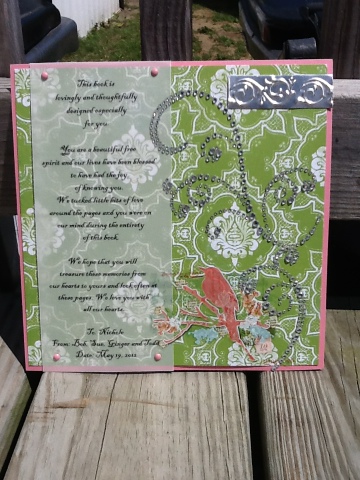 This book is
lovingly and thoughtfully
designed especially
for you.
You are a beautiful free
spirit and our lives have been blessed
to have had the joy
of knowing you.
We tucked little bits of love
around the pages and you were on
our mind during the entirety
of this book.
We hope that you will
treasure these memories from
our hearts to yours and look often at
these pages. We love you with
all our hearts.
To: Nichole
From: Bob, Sue, Ginger and Todd
Date: May 19, 2012